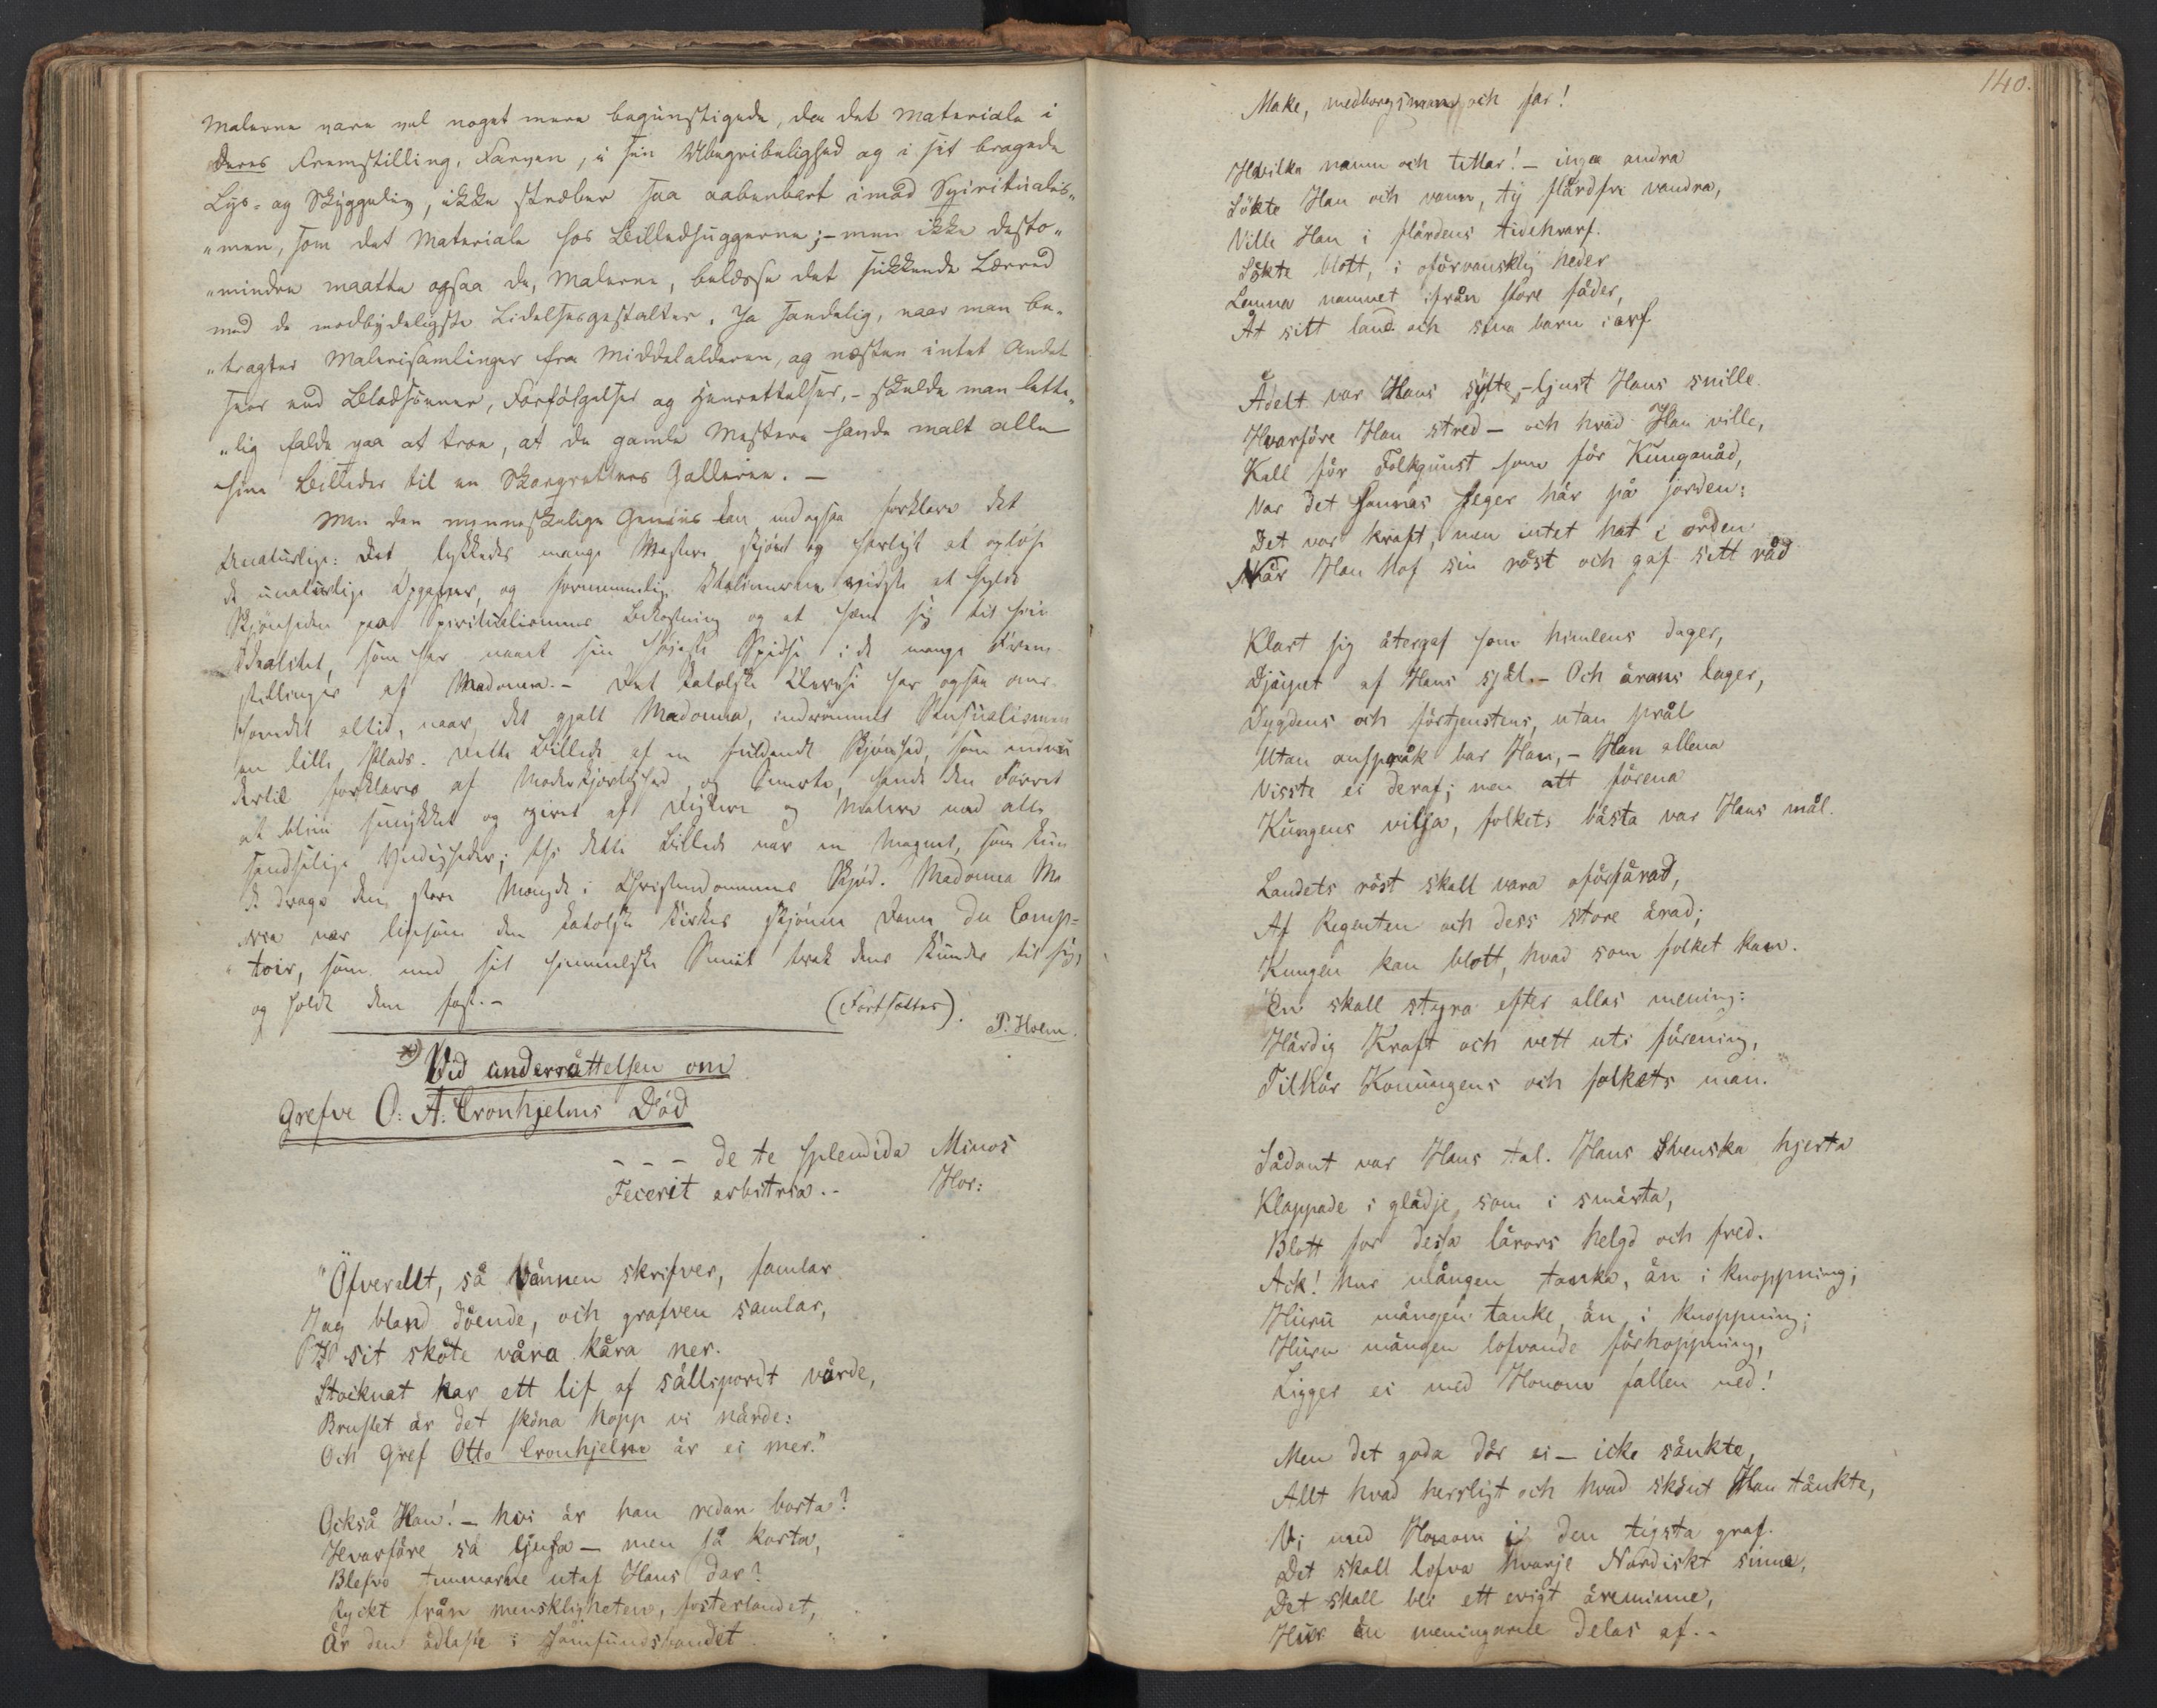 Malerne vare vel noget mere begunstigede, da det Materiale i
deres Fremstilling, Farven, i sin Ubegribelighed og i sit bragede
Lys- og Skyggeliv, ikke stræber saa aabenbart imod Spiritualis-
"men, som det Materiale hos Billedhuggerne; - men ikke desto"
"mindre maatte ogsaa de, Malerne, belæsse det sukkende Lærred
med de modbydeligste Lidelsesgestalter. Ja sandelig, naar man be-
"tragter Malerisamlinger fra Middelalderen, og næsten intet Andet
seer end Blodscener, Forfølgelser og Henrettelser, - skulde man lette"
"lig falde paa at troe, at de gamle Mestere havde malt alle
sine Billeder til en Skarpretters Gallerie. -
Men den menneskelige Genius kan endogsaa forklare det
Unaturlige: det lykkedes mange Mestere skjönt og herligt at oplöse
de unaturlige Opgaver, og fornemmelig Italienerne vidste at hylde
Skjönheden paa Spiritualismens Bekostning og at hæve sig til hin
Idealitet, som har naaet sin höieste Spidse i de mange Frem-
stillinger af Madonna. - Det katolske Cleresi har ogsaa over-
hovedet altid, naar det gjaldt Madonna, indrömmet Sensualismen
en lille Plads. Dette Billede af en fuldendt Skjönhed, som endnu
dertil forklares af Moderkjerlighed og Smerte, havde den Forret
at blive smykket og giret af Digtere og Malere med alle
sandselige Yndigheder; thi dette Billede var en Magnet, som kun
de drage den store Mængde i Christendommens Skjöd. Madonna Ma
ria var ligesom den katolske Kirkes skjönne Dame du Comp-
toir, som med sit himmelske Smiil trak dens Kunder til sig,
og holdt dem fast. -
(Fortsættes).
P. Holm.
*) Vid underrättelsen om
Grefve O: A: Cronhjelms Död
- - - de te splendida Minos
Fecerit arbitria. - Hor:
"Öfverallt, så Vännen skrifver, famlar
Jag bland döende, och grafven samlar,
I sit sköte våra kära ner.
Stocknat har ett lif af sällspordt värde,
Brustet är det sköna hopp vi närde:
Och Gref Otto Cronhjelm är ei mer."
Också Han! - hvi är han redan borta?
Hvarföre så ljufva - men så korta,
Blefvo timmarne utaf Hans dar?
Ryckt från menskligheten, fosterlandet,
Är den ädlaste i Samfundsbandet
140.
Make, medborgsman och far!
Hvilka namn och tittlar! - inga andra
Sökte Han och vann, ty flärdfri vandra,
Ville Han i flärdens tidehvarf.
Sökte blott, i oförvansklig heder
Lemna namnet ifrån store fäder,
Åt sitt land och sina barn i arf
Ädelt var Hans syfte, - ljust Hans snille.
Hvarföre Han stred - och hvad Han ville,
Kall för Folkgunst som för Kunganåd,
Var det sannas seger här på jorden:
Det var kraft, men intet hat i orden
När Han hof sin röst och gaf sitt råd
Klart sig återgaf som himlens dager,
Djupet af Hans själ. - Och ärans lager,
Dygdens och förtjenstens, utan prål
Utan anspråk bar Han, - Han allena
Visste ei deraf; men att förena
Kungens vilja, folkets bästa var Hans mål.
Landets röst skall vara oförfärad,
Af Regenten och dess store ärad;
Kungen kan blott, hvad som folket kan.
En skall styra efter allas mening:
Härdig Kraft och vett uti förening,
Tilhör Konungens och folkets man.
Sådant var Hans tal. Hans Svenska hjerta
Klappade i glädje, som i smärta,
Blott för dessa läroes helgd och fred.
Ack! hur mången tanka, än i knoppning;
Huru mången tanke, än i knoppning;
Huru mången lofvande förhoppning,
Ligger ei med Honom fallen ned!
Men det goda dör ei - icke sänkte,
Allt hvad herrligt och hvad skönt Han tänkte,
Vi med Honom i den tysta graf.
Det skall lefva hvarje Nordiskt sinne,
Det skall bli ett evigt äreminne,
Hur än meningarne delas af. -